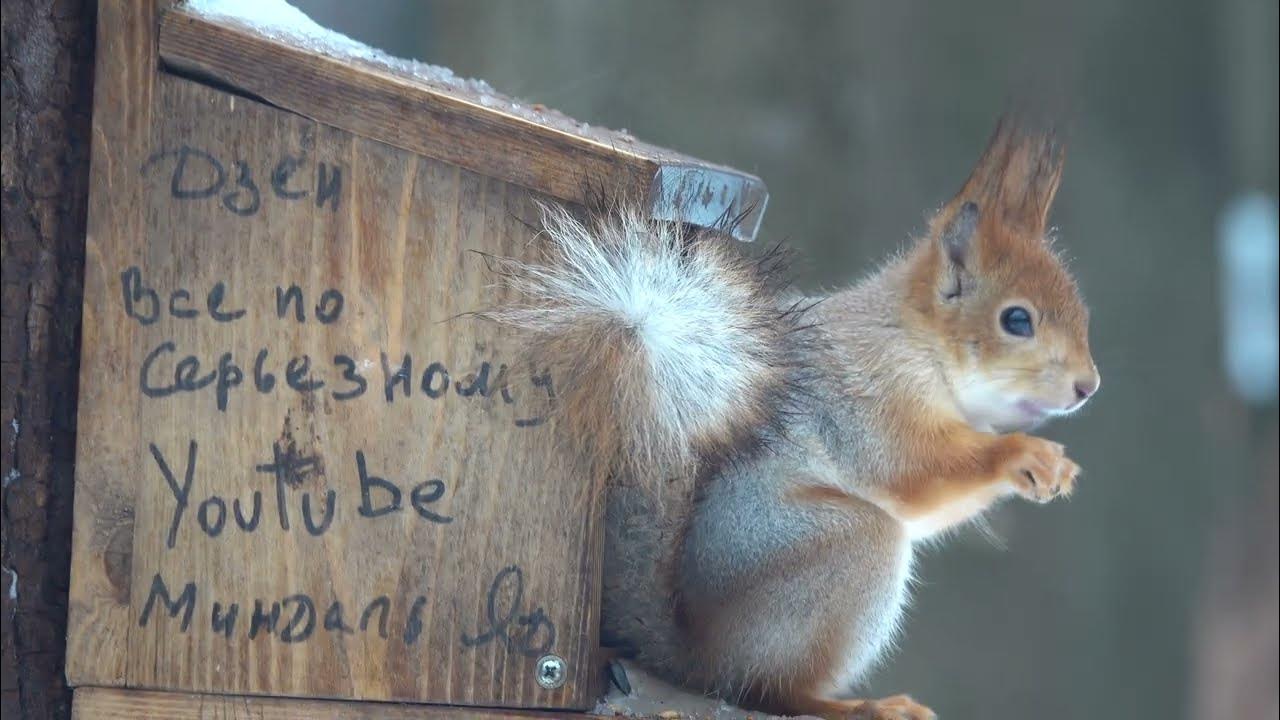 Дзен
Все по
Серьезному
Youtube
Миндаль